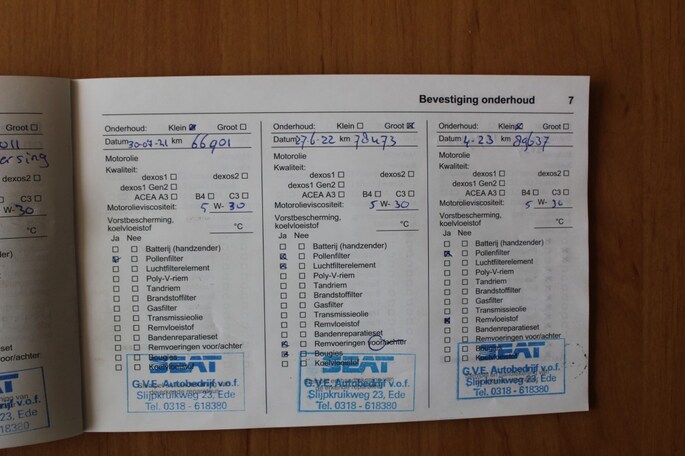 Bevestiging onderhoud 7
Groot
ersing
dexos2
C3
5 W- 30
°C
set
voor/achter
Onderhoud: Klein Groot
Datum 30-07-21 km 66901
Motorolie
Kwaliteit:
dexos1 dexos2
dexos1 Gen2
ACEA A3 B4 C3
Motorolieviscositeit: 5 W- 30
Vorstbescherming,
koelvloeistof °C
Ja Nee
Batterij (handzender)
Pollenfilter
Luchtfilterelement
Poly-V-riem
Tandriem
Brandstoffilter
Gasfilter
Transmissieolie
Remvloeistof
Bandenreparatieset
Remvoeringen voor/achter
Bougies
Koelvloeistof
SEAT
G.V.E. Autobedrijf v.o.f.
Slijpkruikweg 23, Ede
Tel. 0318 - 618380
Onderhoud: Klein Groot
Datum 276-22 km 78473
Motorolie
Kwaliteit:
dexos1 dexos2
dexos1 Gen2
ACEA A3 B4 C3
Motorolieviscositeit: 5 W- 30
Vorstbescherming,
koelvloeistof °C
Ja Nee
Batterij (handzender)
Pollenfilter
Luchtfilterelement
Poly-V-riem
Tandriem
Brandstoffilter
Gasfilter
Transmissieolie
Remvloeistof
Bandenreparatieset
Remvoeringen voor/achter
Bougies
Koelvloeistof
SEAT
G.V.E. Autobedrijf v.o.f.
Slijpkruikweg 23, Ede
Tel. 0318 - 618380
Onderhoud: Klein Groot
Datum 4-23 km 89637
Motorolie
Kwaliteit:
dexos1 dexos2
dexos1 Gen2
ACEA A3 B4 C3
Motorolieviscositeit: 5 W- 30
Vorstbescherming,
koelvloeistof °C
Ja Nee
Batterij (handzender)
Pollenfilter
Luchtfilterelement
Poly-V-riem
Tandriem
Brandstoffilter
Gasfilter
Transmissieolie
Remvloeistof
Bandenreparatieset
Remvoeringen voor/achter
Bougies
Koelvloeistof
SEAT
G.V.E. Autobedrijf v.o.f.
Slijpkruikweg 23, Ede
Tel. 0318 - 618380